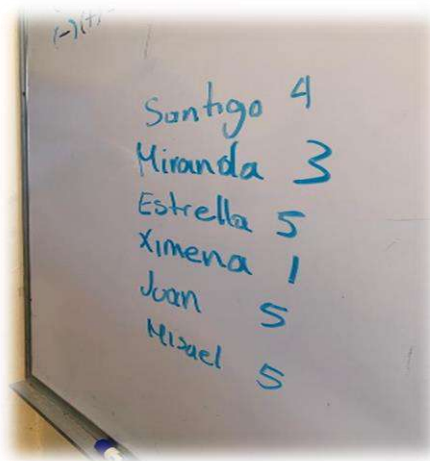 (-)(+)
Santigo 4
Miranda 3
Estrella 5
Ximena 1
Joan 5
Misael 5